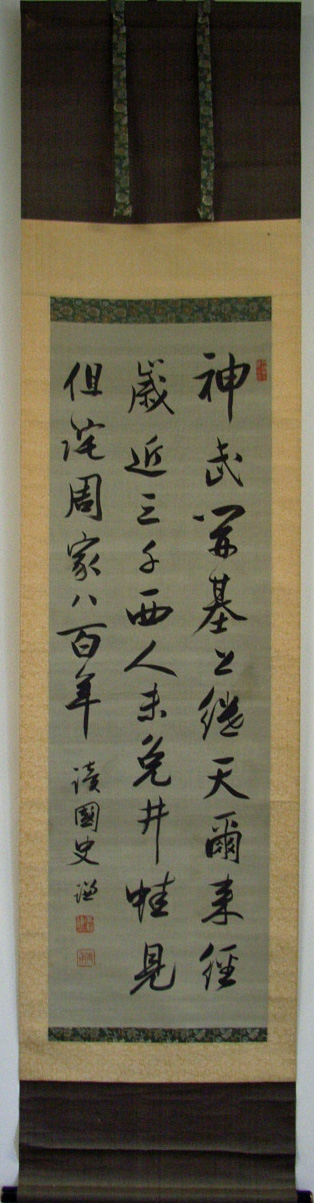 神武開基上继天爾来經
歳近三千西人未免井蛙見
但詫周家八百年 讀國史 謙